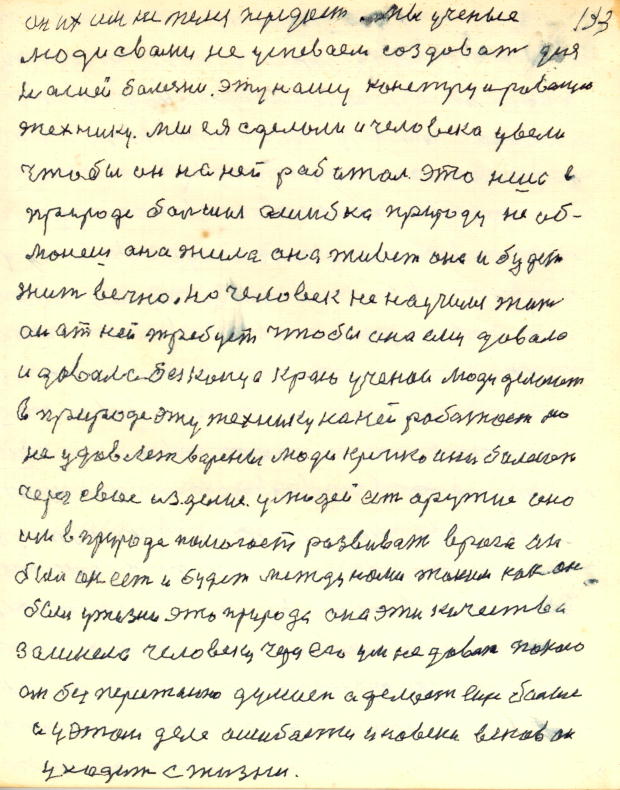 он их им не меня передаст. мы ученые 193
люди свами не успеваем создоват для
нашей болезни. эту нашу конструировану
технику. мы ея сделоли и человека увели
чтобы он на ней работал. это наша в
природе большия ошибка природу не об-
монеш она жила она живет она и будет
жит вечно. но человек не научился жит
он ат ней требует чтобы она ему довала
и довала без конца краю ученои люди делоют
в природе эту технику на ней работают но
не удовлетварены люди крепко они болеют
через свое изделие. у людей ест оружие оно
им в природе помогает развиват врага он
был он ест и будет между нами таким как он
был у жизни это природа она эти качества
человеку через его ум не доват покою
он беспересташно думает а делает еще болше
а у этом деле ошибается и навеки веков он
уходит с жизни.